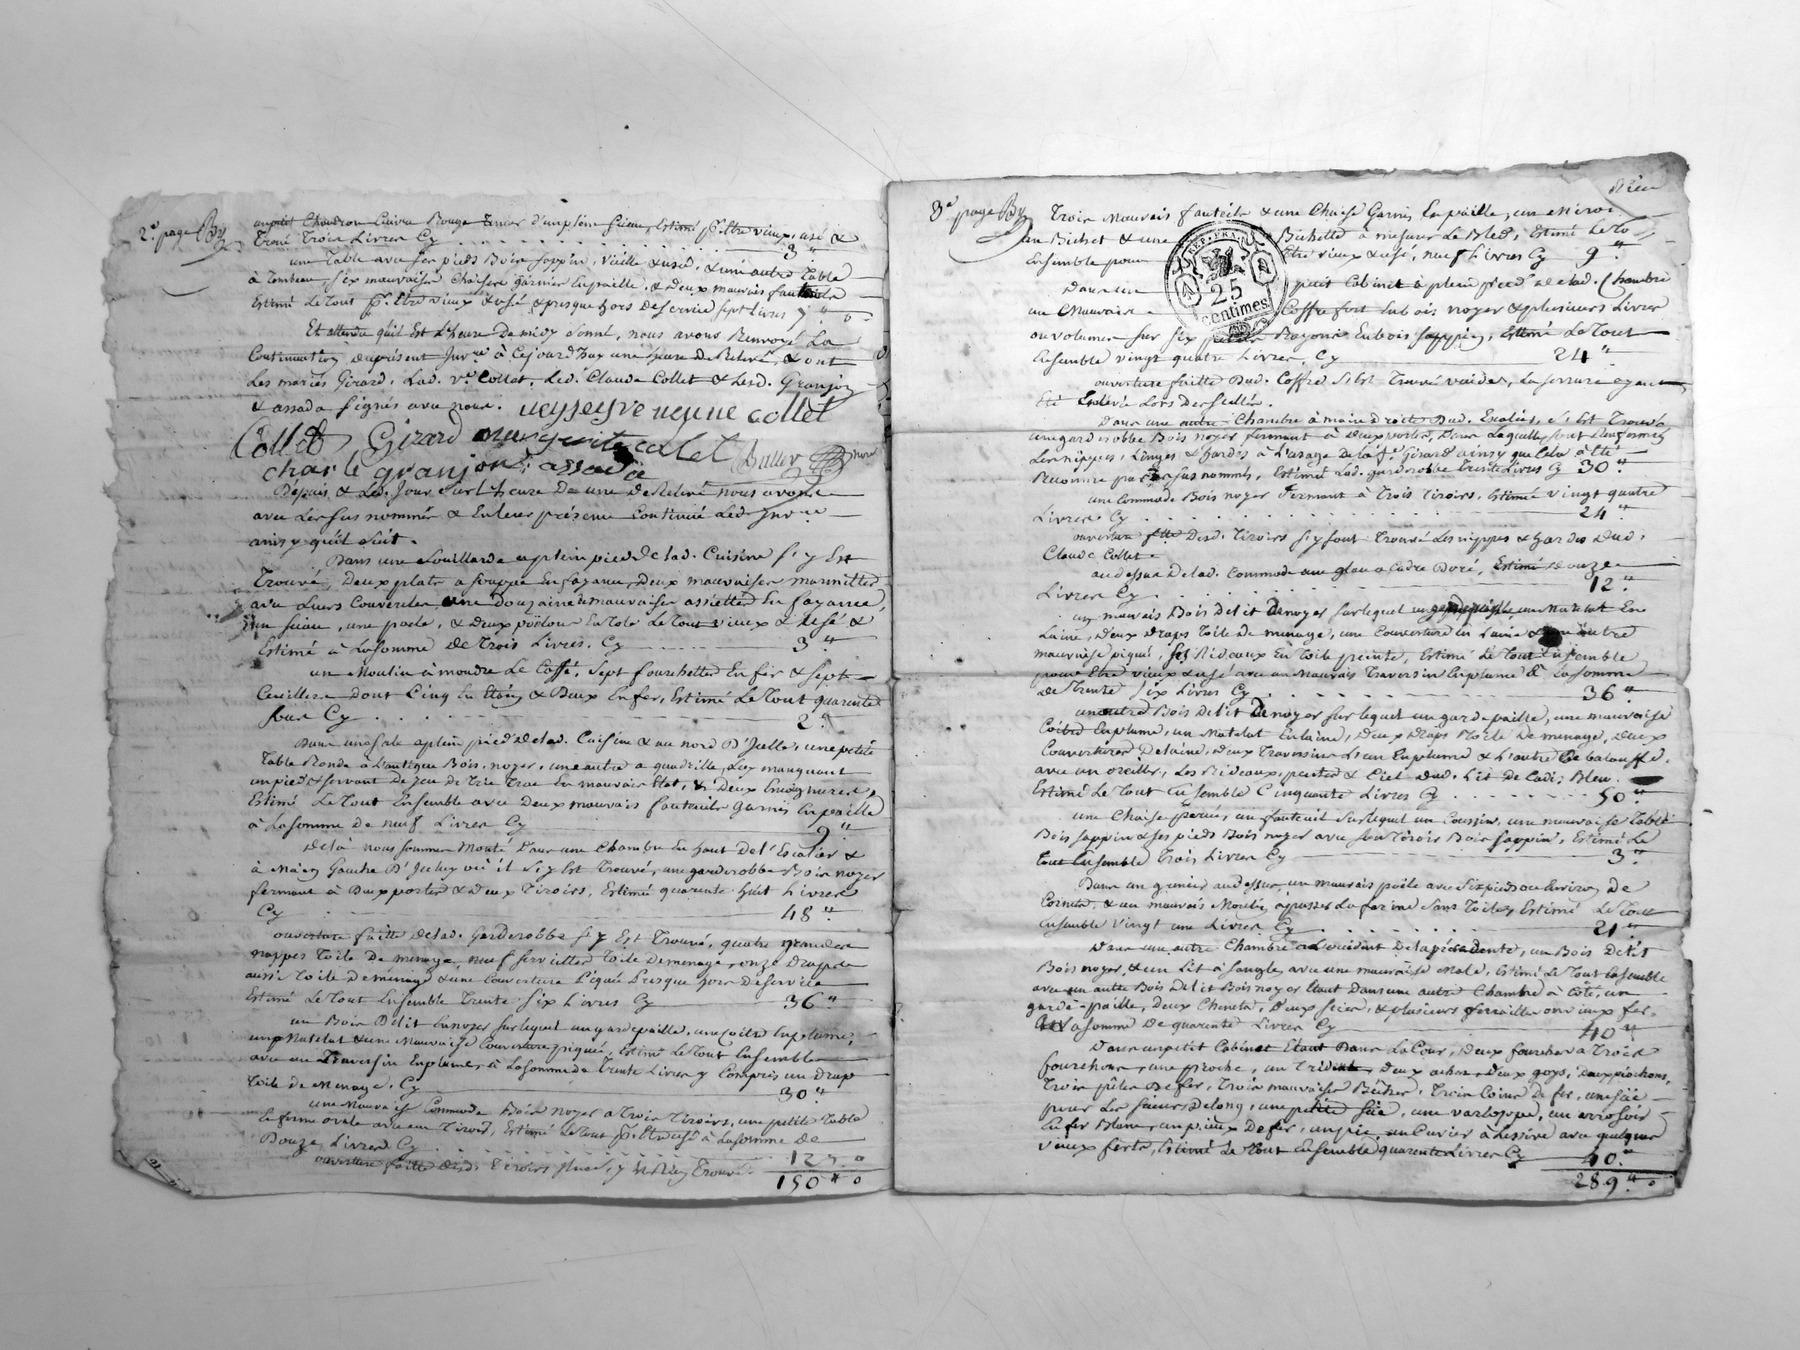 2e page By
un petit Chaudron Cuivre Rouge tenant d'un plein Seiau, Estimé pr. Etre vieux, usé &
Troué Trois Livres Cy 3.
une Table avec ses pieds Bois Sappin, vieille & usée, & une autre Table
à Tombeau, Six mauvaises Chaises garnies En paille, & Deux mauvais fauteuils
Estimé Le Tout pr. Etre vieux & usé & presque hors De service sept Livres 7
Et attendu quil Est L'heure De midy Sonné, nous avons Renvoyé La
Continuation du présent Inv.re à Cejourd'huy une heure De Relevé, & ont
Les mariés Girard, Lad. ve. Collet, Led. Claude Collet & Lesd. Granjon
& assada signés avec nous. veysseyre veuve collet
Collet Girard marguerite colet
charle granjon assada
Depuis & Led. Jour sur L'heure De une De Relevé nous avons
avec Les sus nommés & En leur présence Continué Led. Inv.re
ainsy quil suit.
Dans une Souillarde a plein pied De lad. Cuisine s'y Est
Trouvé, Deux plats a souppe En fayance, Deux mauvaises marmittes
avec Leurs Couvercles une Douzaine De mauvaises assiettes En fayance,
un Seiau, une poele, & Deux poëlons En Tole Le Tout vieux & Usé &
Estimé à La somme De Trois Livres. Cy 3
un Moulin à moudre Le Caffé, Sept fourchettes En fer & sept
Ceuilleres Dont Cinq En Etain & Deux En fer, Estimé Le Tout quarente
sous Cy 2
Dans une Sale a plein pied De lad. Cuisine & au nord D'Icelle, une petite
Table Ronde à L'antique Bois noyer, une autre a quadrille, Luy manquant
un pied & servant De jeu De Tric Trac En mauvais Etat, & Deux Encoignures,
Estimé Le Tout Ensemble avec Deux mauvais fauteuils garnis En paille
à La somme De neuf Livres Cy 9
Delà nous sommes Monté Dans une Chambre En haut De L'Escalier &
à Main Gauche D'Iceluy où il s'y Est Trouvé, une garderobbe Bois noyer
fermant à Deux portes & Deux Tiroirs, Estimé quarente huit Livres
Cy 48
ouverture faitte De lad. Garderobbe s'y Est Trouvé, quatre grandes
nappes Toile De ménage, neuf serviettes Toile De menage, onze Draps De
aussi Toile De ménage & une Couverture Piquée Presque hors De service
Estimé Le Tout Ensemble Trente Six Livres Cy 36
un Bois De lit En noyer sur lequel un gardepaille, une Coitre En plume,
un Matelat & une Mauvaise Couverture piquée, Estimé Le Tout Ensemble
avec un Traversin En plumes, à La somme De Trente Livres y Compris un Drap
Toile De Menage, Cy 30
une Mauvaise Commode Bois noyer a Trois Tiroirs, une petite Table
En forme ovale avec un Tiroir, Estimé Le Tout pr. Etre usé à La somme De
Douze Livres Cy 12
ouverture faitte Desd. Tiroirs il ne s'y Est Rien Trouvé.
150
3e page By
Trois Mauvais fauteils & une Chaise Garnis En paille, un Miroir
un Bichet & une Bichette à mesurer Le Bled, Estimé Le Tout
Ensemble pour Etre vieux & usé, neuf Livres Cy 9
REP. FRA.
25
centimes
Dans un petit Cabinet à plein pied De lad. Chambre
un Mauvais Coffre fort En bois noyer & plusieurs Livres
ou volumes sur six Rayons En bois sappin, Estimé Le Tout
Ensemble vingt quatre Livres, Cy 24
ouverture faitte Dud. Coffre s'Est Trouvé vuide, La serrure ayant
Eté Enlevée Lors Des scellés.
Dans une autre Chambre à main droite Dud. Escalier, s'Est Trouvé
une garderobbe Bois noyer fermant à Deux portes, Dans Laquelle sont Renfermés
Les nippes, Linges & hardes à L'usage De la fe. Girard ainsy que Cela a été
Reconnu par Les sus nommés, Estimé Lad. garderobbe Trente Livres Cy 30
une Commode Bois noyer Fermant à Trois Tiroirs, Estimée vingt quatre
Livres Cy 24
ouverture f.tte Desd. Tiroirs s'y sont Trouvé Les nippes & hardes Dud.
Claude Collet.
au dessus De lad. Commode une glace a Cadre Doré, Estimé Douze
Livres Cy 12
un mauvais Bois De lit De noyer sur lequel un gardepaille, un Matelat En
Laine, Deux Draps Toile De menage, une Couverture En Laine & une autre
mauvaise piquée, Ses Rideaux En Toile peinte, Estimé Le Tout Ensemble
pour Etre vieux & usé avec un Mauvais Traversin En plume à La somme
De Trente Six Livres Cy 36
un autre Bois De lit De noyer sur lequel un gardepaille, une mauvaise
Coitre En plume, un Matelat En laine, Deux Draps Toile De menage, Deux
Couvertures De laine, Deux Traversins L'un En plume & L'autre De balouffe,
avec un oreiller, Les Rideaux, pentes & Ciel Dud. Lit De Cadis Bleu.
Estimé Le Tout Ensemble Cinquante Livres Cy 50
une Chaise percée, un fauteuil sur lequel un Coussin, une mauvaise Table
Bois sappin & ses pieds Bois noyer avec son Tiroir Bois sappin, Estimé Le
Tout Ensemble Trois Livres Cy 3
Dans un grenier au dessus, un mauvais poële avec Six pieds ou Environ De
Cornets, & un mauvais Moulin à passer La farine sans Toile, Estimé Le Tout
Ensemble Vingt une Livres Cy 21
Dans une autre Chambre De la précédente, un Bois De lit
Bois noyer, & un Lit à sangle, avec une mauvaise Male, Estimé Le Tout Ensemble
avec un autre Bois De lit Bois noyer Etant Dans une autre Chambre à Côté, un
garde-paille, Deux Chenets, Deux Scies, & plusieurs ferrailles ou vieux fer,
à La somme De quarente Livres Cy 40
Dans un petit Cabinet Etant Dans La Cour, Deux fourches a Trois
fourchons, une pioche, un Trident, Deux achons, Deux goys, Deux piochons,
Trois pêles De fer, Trois mauvaises Bêches, Trois Coins De fer, une Scie
pour Les scieurs De long, une petite Scie, une varlopppe, un arrosoir
En fer Blanc, un pieux De fer, un pic, un Cuvier à Lessive avec quelques
vieux ferts, Estimé Le Tout Ensemble quarente Livres Cy 40
289